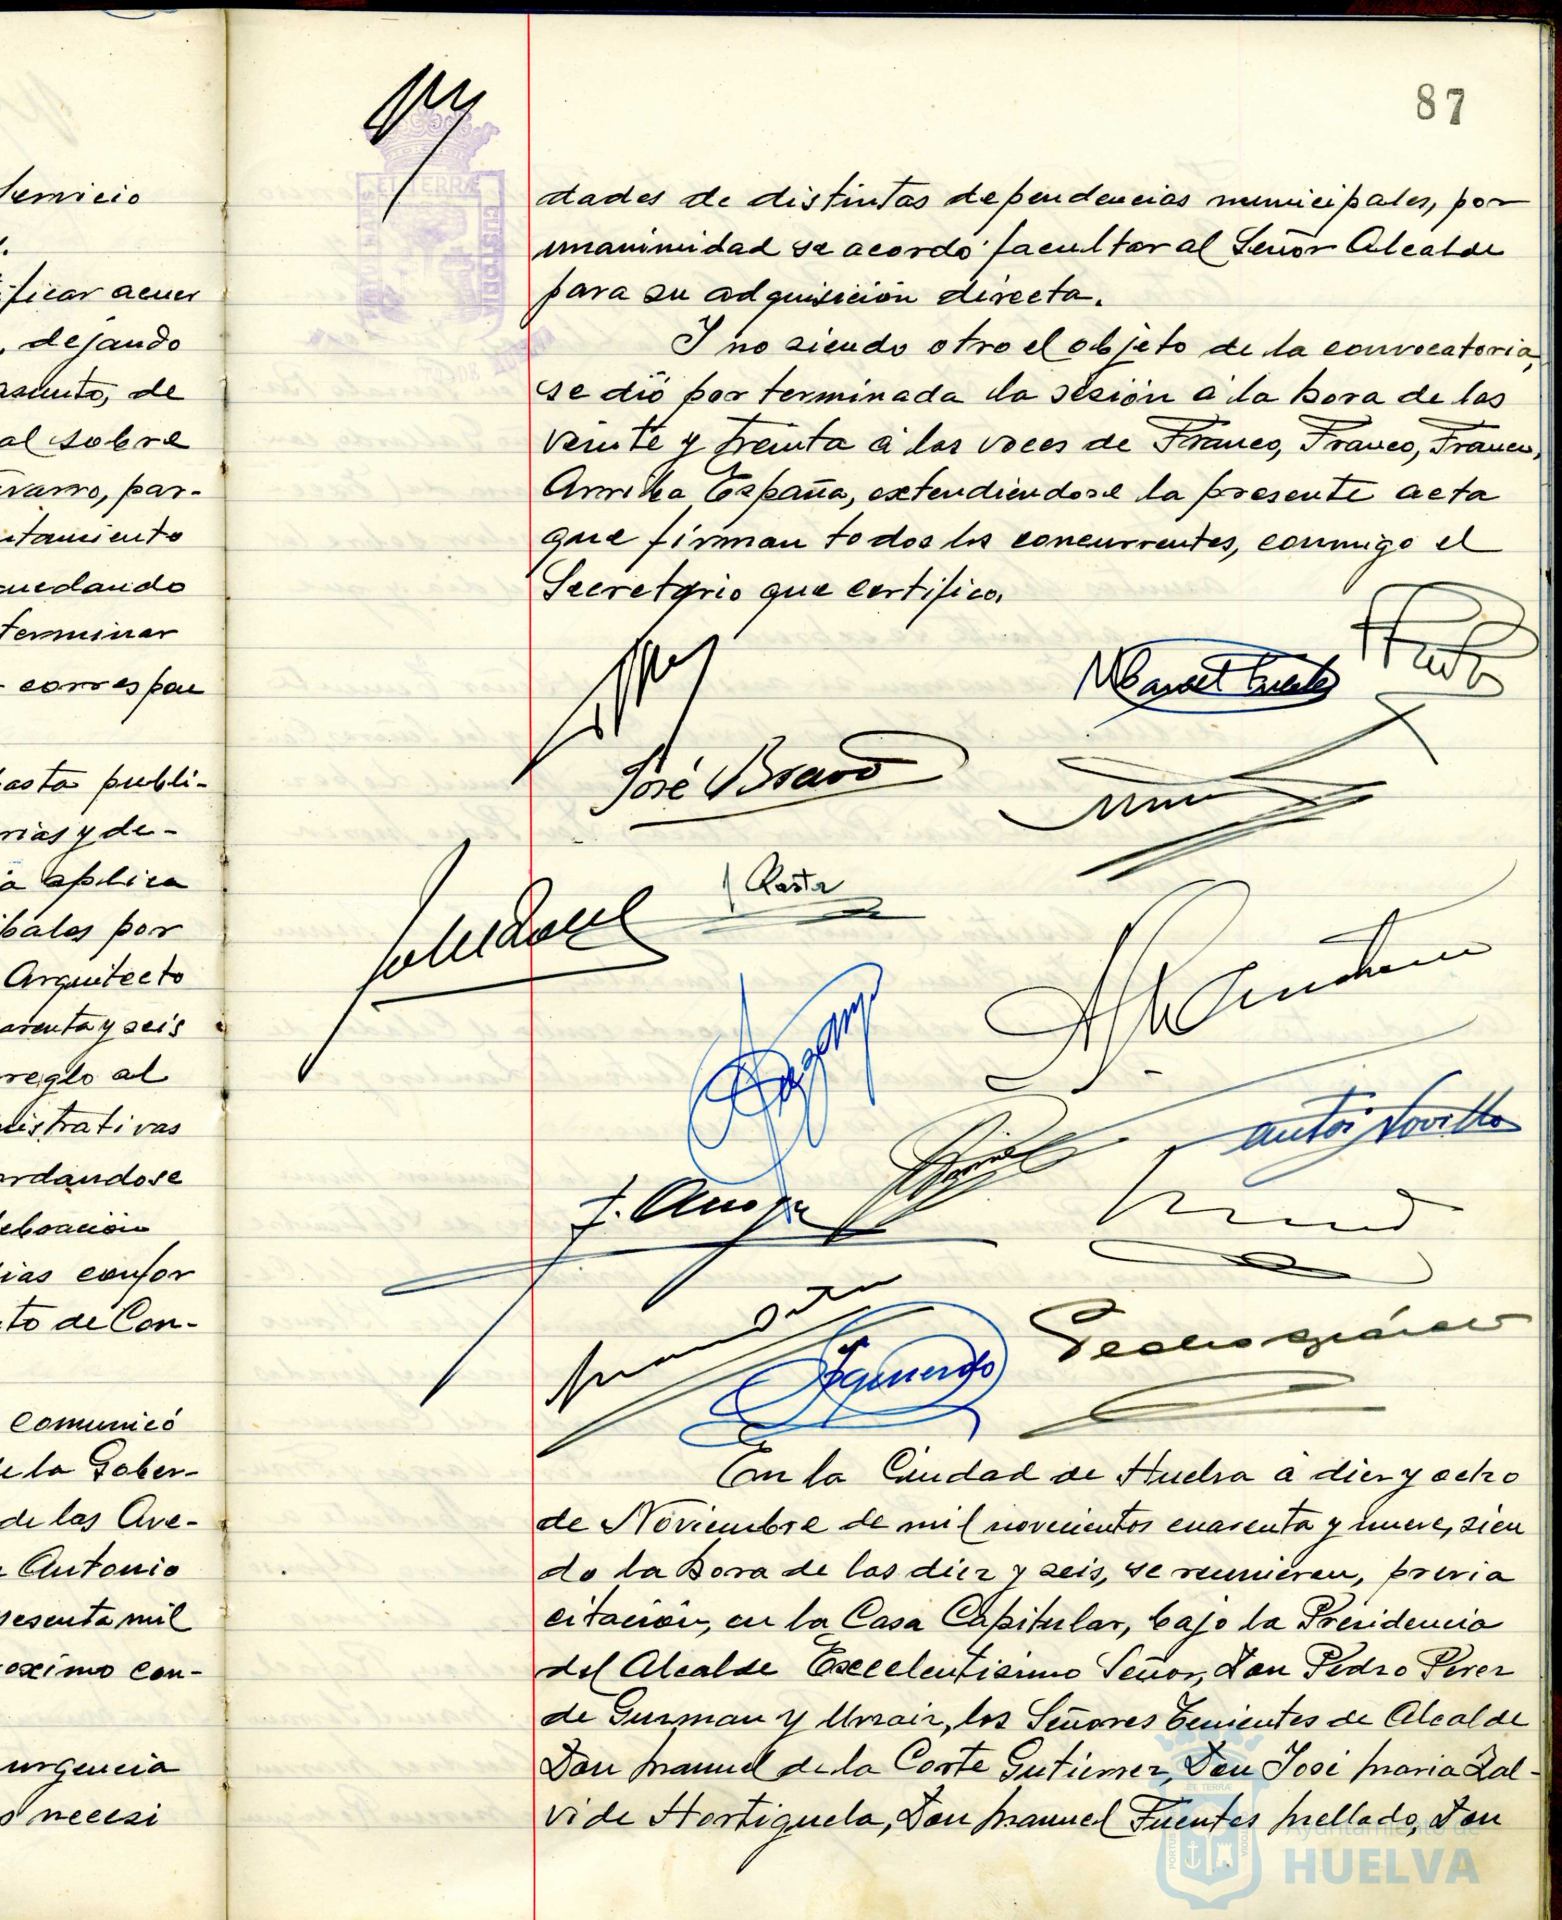 87
Servicio
ficar acuer
, dejando
asunto, de
al sobre
varro, par-
ntamiento
quedando
terminar
correspon
basta publi-
rias y de-
a aplica
ipales por
Arquitecto
arenta y seis
reglo al
nistrativas
ordandose
lebración
ias confor
to de Con-
comunicó
de la Gober-
de las Ave-
Antonio
esenta mil
oximo con-
urgencia
o necesi
dades de distintas dependencias municipales, por
unanimidad se acordó facultar al Señor Alcalde
para su adquisición directa.
Y no siendo otro el objeto de la convocatoria,
se dió por terminada la sesión á la hora de las
veinte y treinta á las voces de Franco, Franco, Franco,
Arriba España, extendiendose la presente acta
que firman todos los concurrentes, conmigo el
Secretario que certifico.
Manuel Fuentes
José Bravo
antoº Novillo
En la Ciudad de Huelva á diez y ocho
de Noviembre de mil novecientos cuarenta y nueve, sien
do la hora de las diez y seis, se reunieron, previa
citación, en la Casa Capitular, bajo la Presidencia
del Alcalde Excelentísimo Señor, Don Pedro Perez
de Guzman y Urzaiz, los Señores Tenientes de Alcalde
Don Manuel de la Corte Gutierrez, Don José Maria Zal-
vide Hortiguela, Don Manuel Fuentes Mellado, Don
Ayuntamiento de
HUELVA